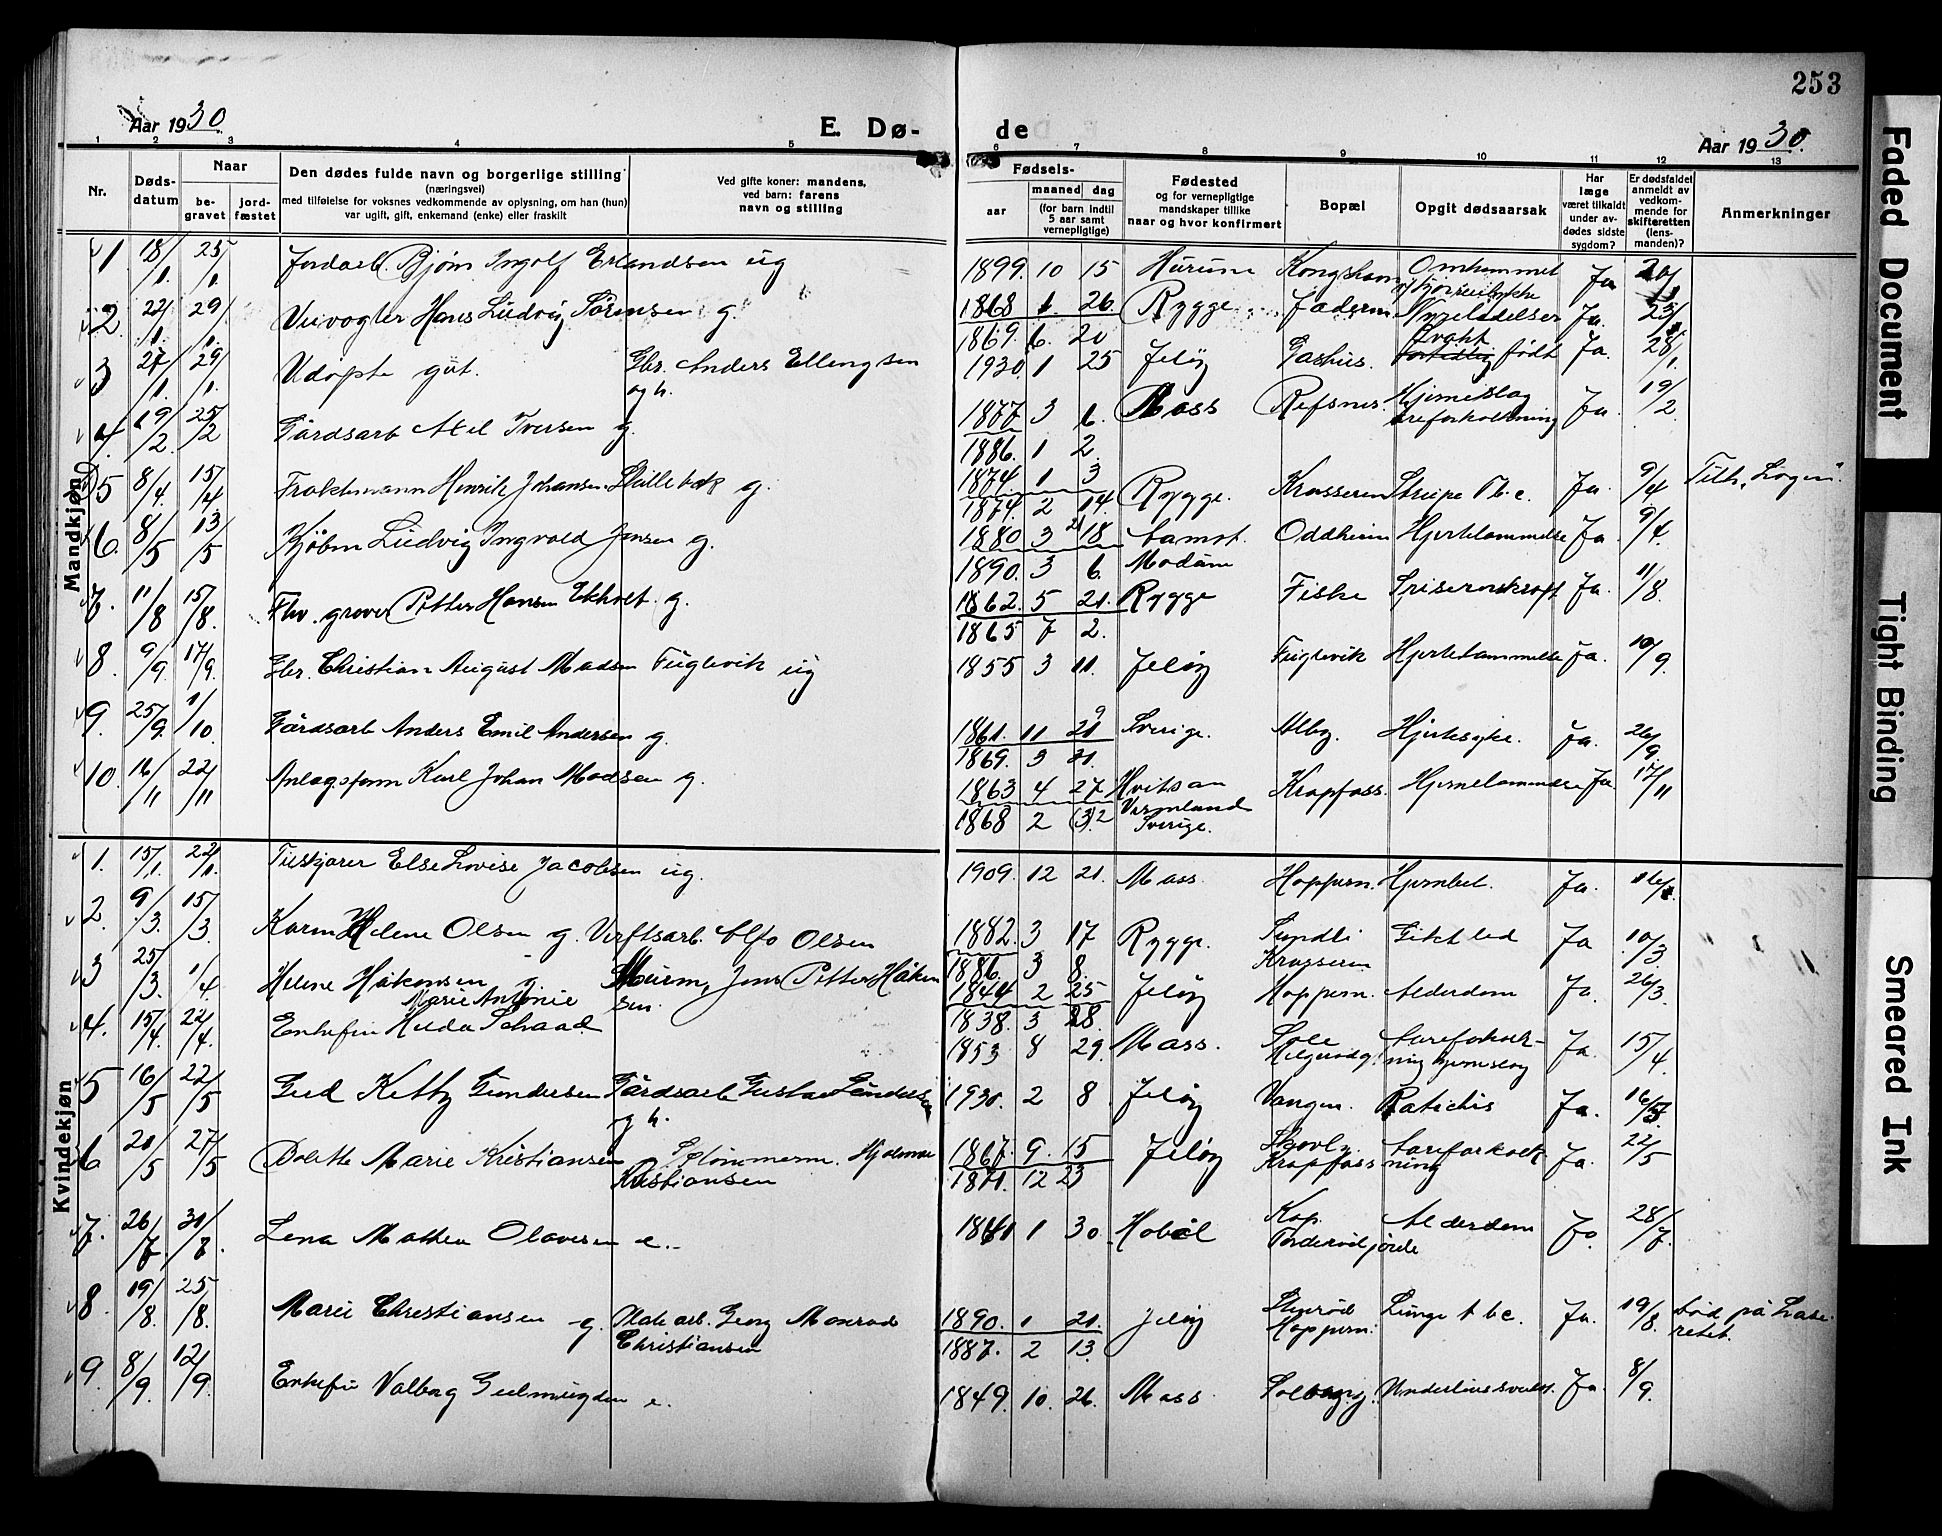 253
Aar 1930
E. Dø-
de
Aar 1930.
1 2 3 4 5 6 7 8 9 10 11 12 13
Nr.
Døds-
datum
Naar
be-
gravet
jord-
fæstet
Den dødes fulde navn og borgerlige stilling
(næringsvei)
med tilføielse for voksnes vedkommende av oplysning, om han (hun)
var ugift, gift, enkemand (enke) eller fraskilt
Ved gifte koner: mandens,
ved barn: farens
navn og stilling
Fødsels-
aar
maaned
dag
(for barn indtil
5 aar samt
vernepligtige)
Fødested
og for vernepligtige
mandskaper tillike
naar og hvor konfirmert
Bopæl
Opgit dødsaarsak
Har
læge
været tilkaldt
under av-
dødes sidste
sygdom?
Er dødsfaldet
anmeldt av
vedkom-
mende for
skifteretten
(lens-
manden)?
Anmerkninger
Mandkjøn
1 18/1. 25/1 Jordarb. Bjørn Ingolf Erlandsen ug 1899. 10 15 Hurum Kongshavn Omkommet Ja 20/1
2 22/1. 29/1. Hans Ludvig Sørensen g. 1868 1. 26. Rygge Ja. 23/1
1869. 6. 20
3 27/1. 29/1. Udøpte gut. Gbr. Anders Ellingsen 1930. 1 25 Jeløy Gashus. født Ja. 28/1.
og h.
4. 19/2 25/2 Gårdsarb Axel Iversen g. 1877 3 6. Moss Refsnes. Hjerneslag Ja 19/2
åreforkalkning
1886. 1 2.
5 8/4. 15/4. Fraktemann Henrik Johansen g. 1874. 1 3 Rygge. Krosseren Strupe Tb.c. Ja. 9/4 Tilh. "Logen".
1874. 2 14.
6. 8/5 13/5 Kjøbm Ludvig Ingvald Jensen g. 1880 3 18 Oddheim Hjertelammelse Ja 9/4.
1890. 3 6. Modum
7. 11/8 15/8. Petter Hansen Ekholt. g. 1862. 5 21. Rygge Fiske Spiserørskræft Ja. 11/8.
1865 7 2.
8. 9/9. 17/9. Gbr. Christian August Madsen Fuglevik ug 1855 3 11. Jeløy Fuglevik Hjertelammelse Ja. 10/9
9. 25/9. 1/10 Gårdsarb Anders Emil Andersen g. 1861. 11 21 Sverige. Alby. Hjertesyke. Ja. 26/9
1869. 3 21.
10. 16/11 22/11 Anlagsform Karl Johan Madsen g. 1863 4 27 Krapfoss. Hjernelammelse Ja 17/11
Vermland
1868 2 Sverige.
Kvindekjøn
1. 15/1. 22/1. Else Lovise Jacobsen ug. 1909. 12 21. Moss. Hoppern. Ja. 16/1
2. 9/3. 15/3. Karen Helene Olsen g. Verftsarb. Olfo Olsen 1882. 3 17 Rygge. Sundli Ja 10/3.
Krosseren
1886. 3 8.
3 25/3. 1/4. Helene Håkonsen g. Murm. Jens Petter Håken 1844 2 25 Jeløy Hoppern. Alderdom Ja. 26/3.
sen
1838. 3 28.
Marie Antonie
4. 15/4. 22/4. Enkefru Hulda Schaad 1853 8 29. Moss. Åreforkalk- Ja. 15/4.
ning hjerneslag
5 16/5 22/5 Gud Ketty Gundersen Gårdsarb Gustav Gundersen 1930. 2 8 Jeløy Vangen. Ratichis Ja. 16/5
og h.
6 20/5 27/5 Bolette Marie Kristiansen Hjalmar 1867. 9. 15 Jeløy Skovly Åreforkalk Ja. 22/5
Kristiansen Krapfoss ning
1871. 12 23
7. 26/7 30/7. Lena Mathea Olavesen e. 1841 1 30. Hobøl Kap. Alderdom Ja 28/7.
8. 19/8. 25/8. Marie Christiansen g. Georg Monrad 1890. 1 21. Jeløy Stenrød Lunge t b c. Ja. 19/8. Død på Lasa-
Christiansen Hoppern. retet.
1887. 2 13.
9. 8/9. 12/9. Enkefru Valborg e. 1849. 10. 26. Moss Solborg. Underlivssvulst. Ja. 8/9.
Faded Document
Tight Binding
Smeared Ink